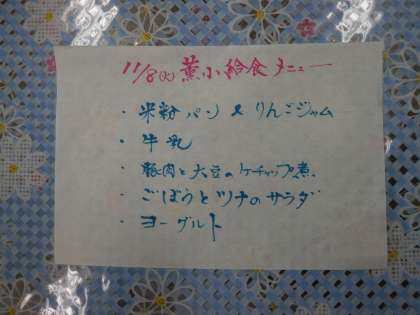 11/8(火) 薫小給食メニュー
・米粉パン & りんごジャム
・牛乳
・豚肉と大豆のケチャップ煮
・ごぼうとツナのサラダ
・ヨーグルト